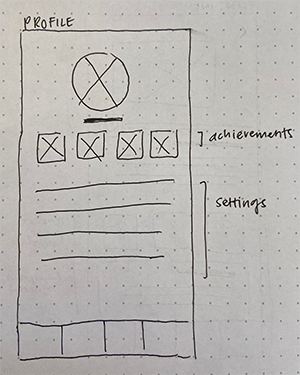 PROFILE
achievements
settings